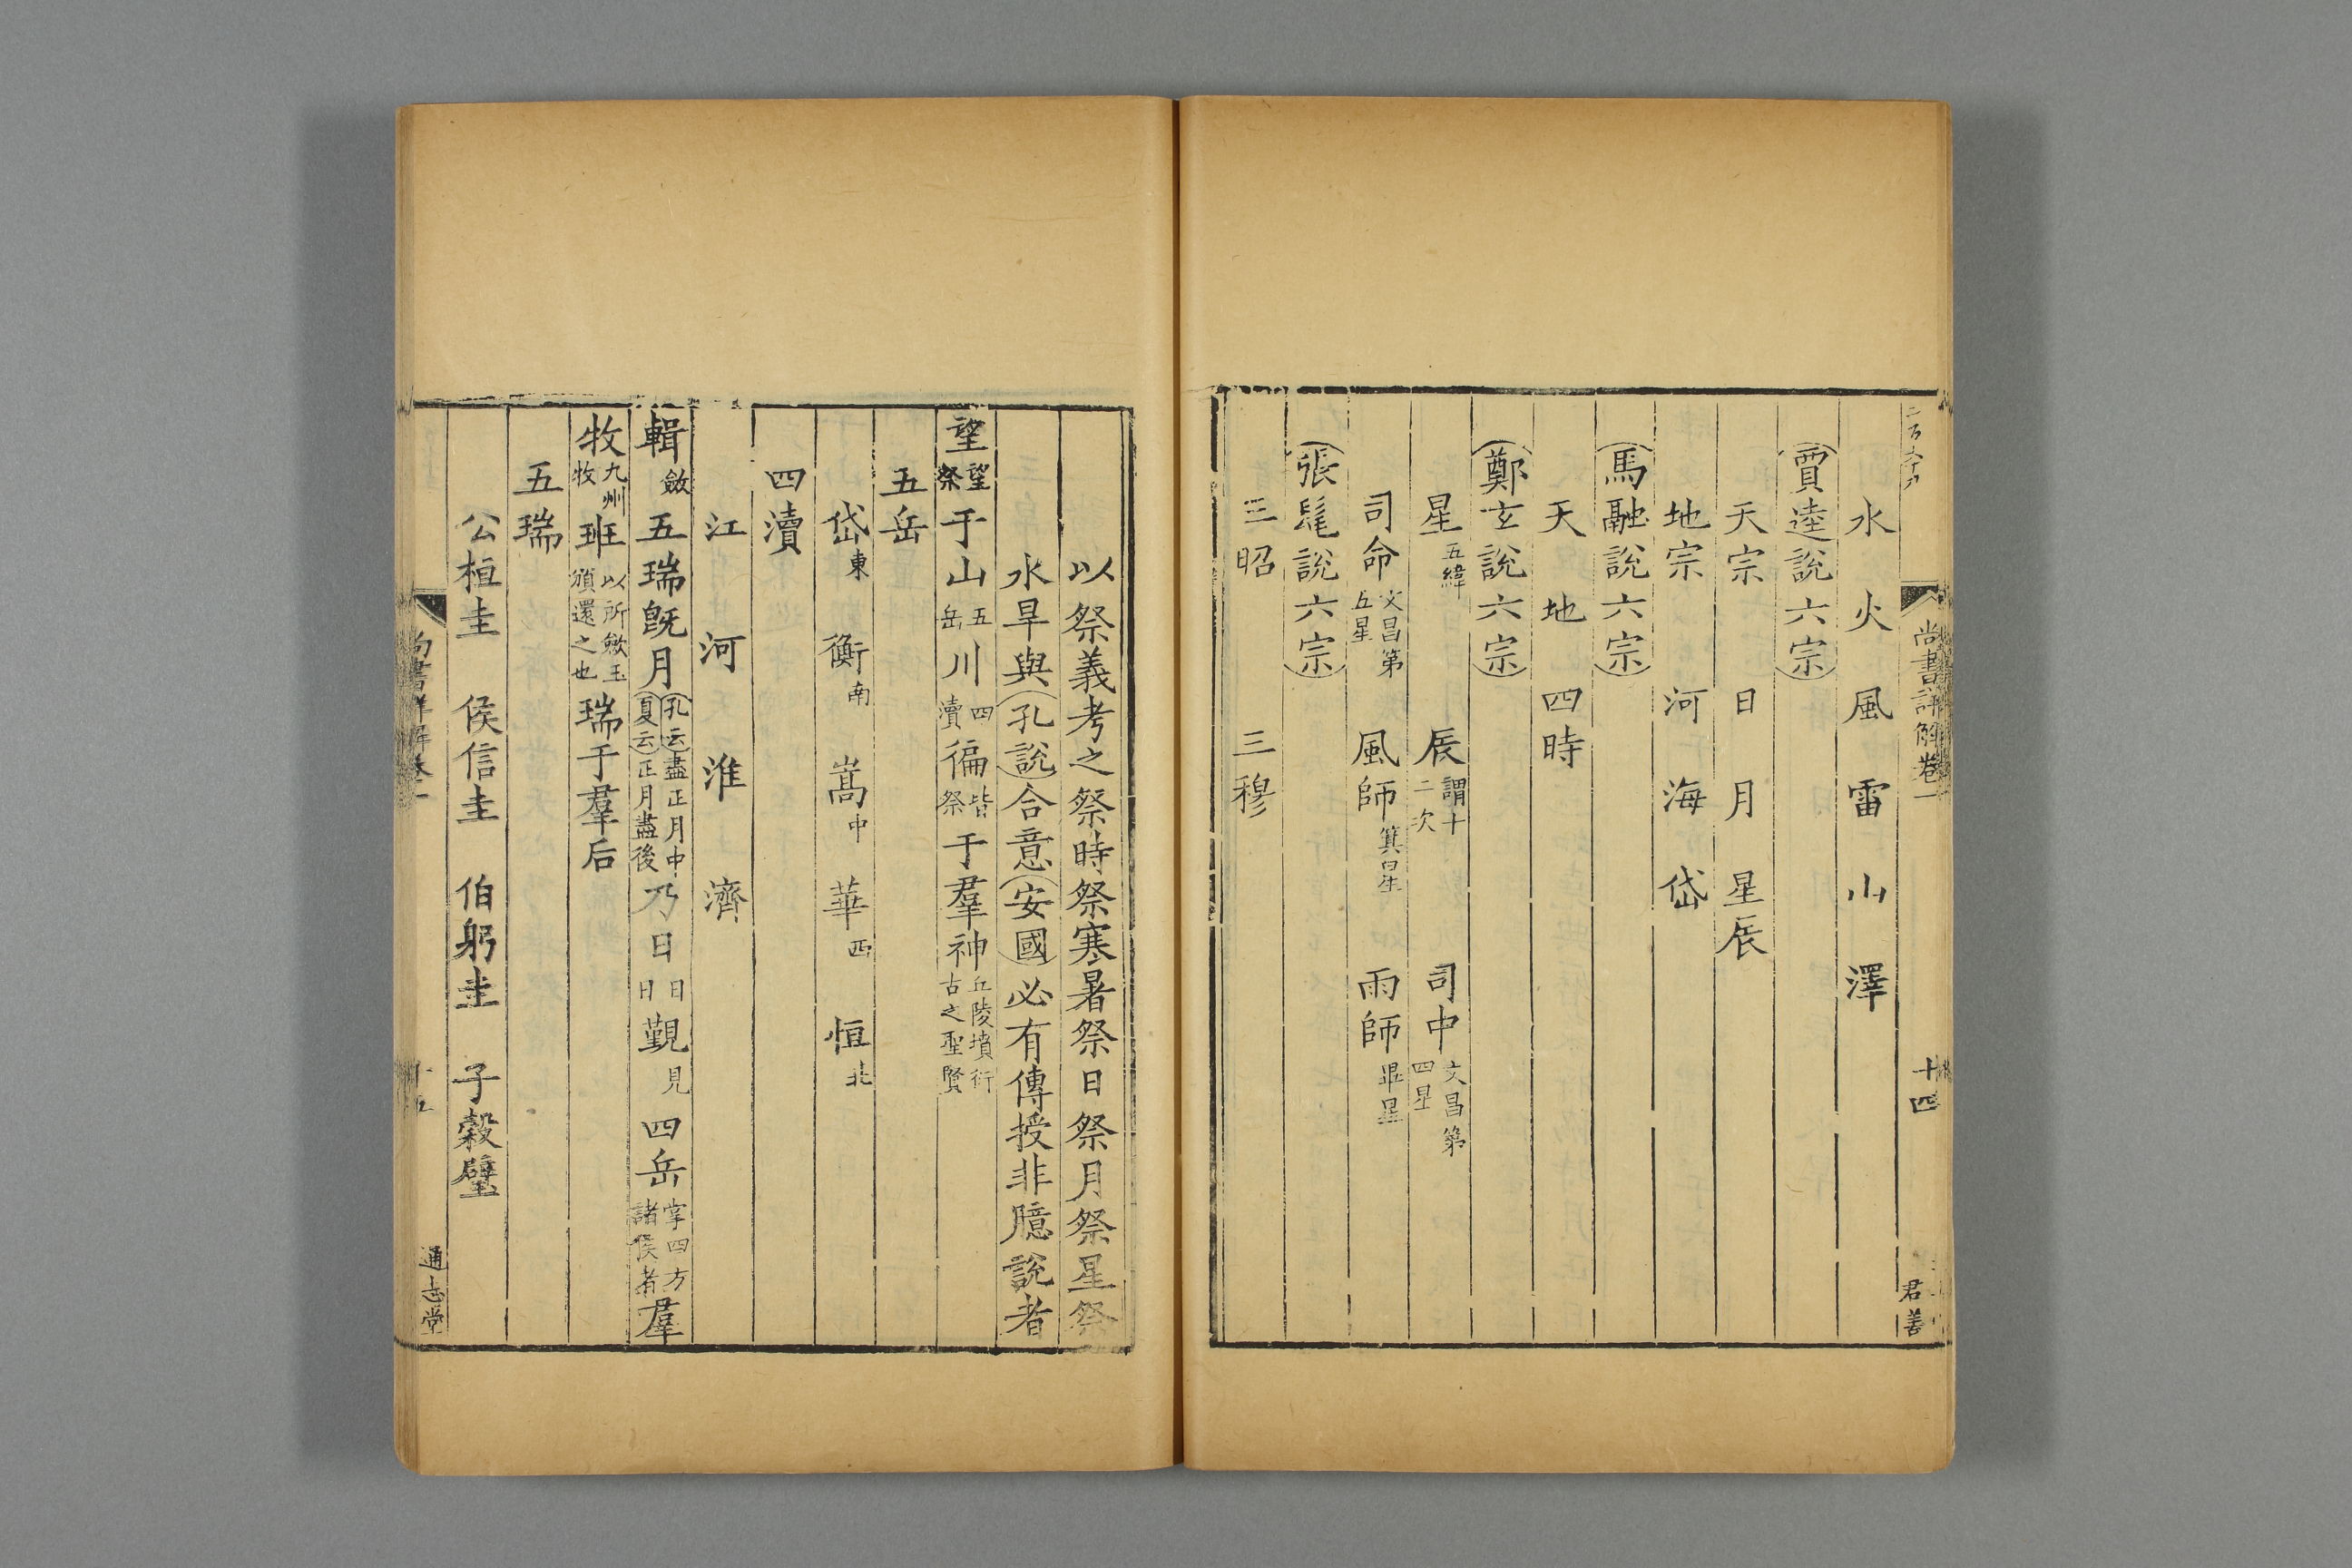 尚書詳解卷一 十四 君善
水 火 風 雷 山 澤
賈逵說六宗
天宗 日 月 星辰
地宗 河 海 岱
馬融說六宗
天 地 四時
鄭玄說六宗
星五緯 辰謂十二次 司中文昌第四星
司命文昌第五星 風師箕星 雨師畢星
張髦說六宗
三昭 三穆
以祭義考之祭時祭寒暑祭日祭月祭星祭
水旱與孔說合意安國必有傳授非臆說者
望望祭于山五岳川四瀆徧皆祭于羣神丘陵墳衍古之聖賢
五岳
岱東 衡南 嵩中 華西 恒北
四瀆
江 河 淮 濟
輯斂五瑞旣月孔云盡正月中夏云正月盡後乃日日日覲見四岳掌四方諸侯者羣
牧九州牧班以所斂玉頒還之也瑞于羣后
五瑞
公桓圭 侯信圭 伯躬圭 子穀璧
尚書詳解卷一 十五 通志堂